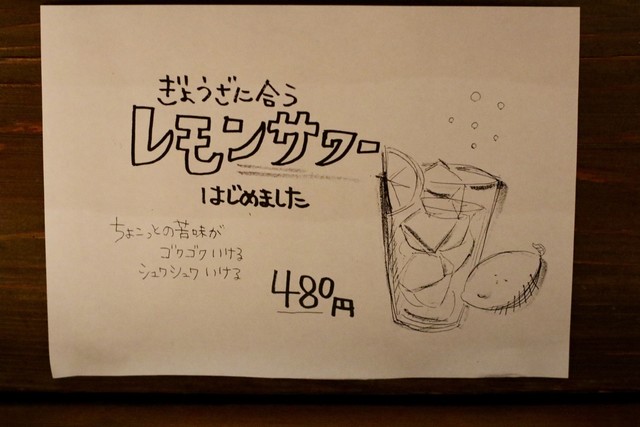 ぎょうざに合う
レモンサワー
はじめました
ちょこっとの苦味が
ゴクゴクいける
シュワシュワいける
480円